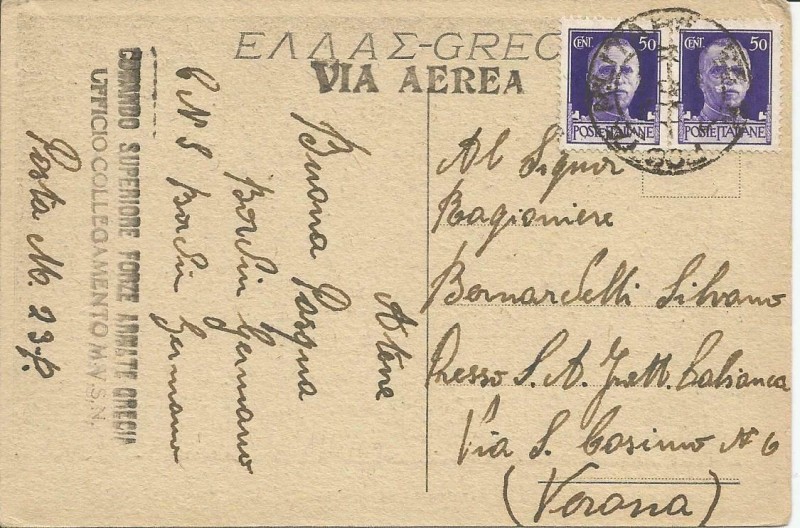 ΕΛΛΑΣ-GREC
VIA AEREA
CENT. 50
POSTE ITALIANE
CENT. 50
POSTE ITALIANE
Al Signor
Ragioniere
Bernardelli Silvano
Presso S. A. Fratt. Calsianca
Via S. Cosimo N 6
(Verona)
Atene
Buona Pasqua
Bordin Germano
C N S Bordin Germano
COMANDO SUPERIORE FORZE ARMATE GRECIA
UFFICIO COLLEGAMENTO M.V.S.N.
Posta M. 23 P.